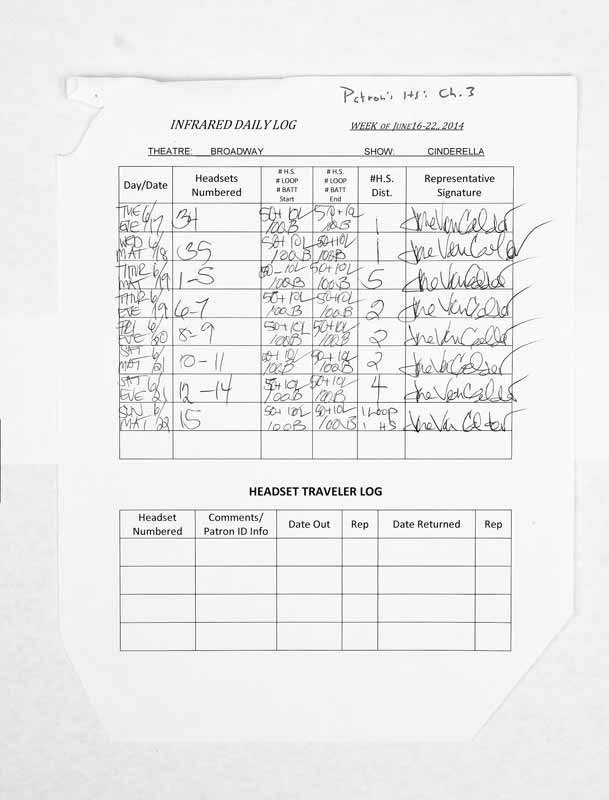 Patron's Hs: Ch. 3
INFRARED DAILY LOG WEEK OF JUNE16-22,, 2014
THEATRE: BROADWAY SHOW: CINDERELLA
Day/Date Headsets Numbered # H.S. # LOOP # BATT Start # H.S. # LOOP # BATT End #H.S. Dist. Representative Signature
TUE 6/17 EVE 34 50+10L 100B 50+10L 100B 1
WED 6/18 MAT 35 50+10L 100B 50+10L 100B 1
THUR 6/19 MAT 1-5 50-10L 100B 50+10L 100B 5
THUR 6/19 EVE 6-7 50+10L 100B 50+10L 100B 2
FRI 6/20 EVE 8-9 50+10L 100B 50+10L 100B 2
SAT 6/21 MAT 10-11 50+10L 100B 50+10L 100B 2
SAT 6/21 EVE 12-14 50+10L 100B 50+10L 100B 4
SUN 6/22 MAT 15 50+10L 100B 50+10L 100B 1 LOOP 1 HS
HEADSET TRAVELER LOG
Headset Numbered Comments/ Patron ID Info Date Out Rep Date Returned Rep